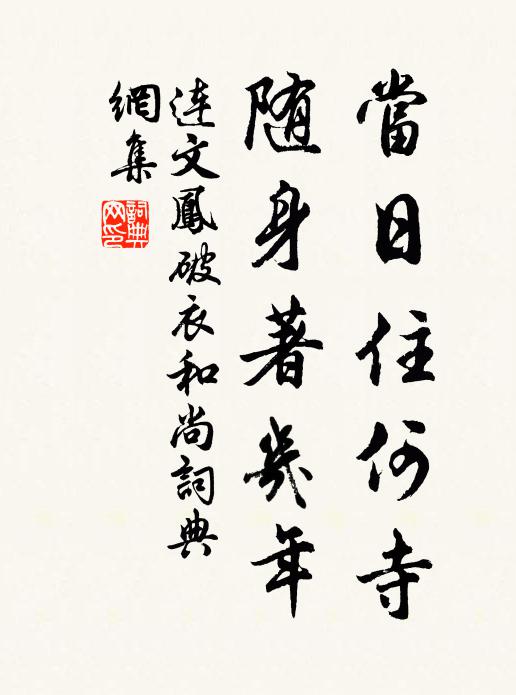 當日住何寺
隨身著幾年
連文鳳破衣和尚詞典
網集
詞典
网印